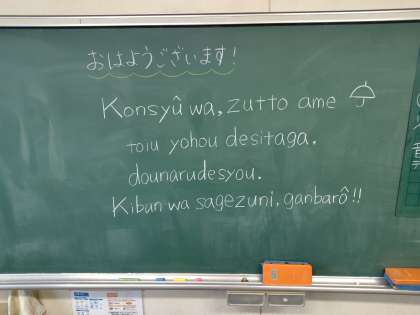 おはようございます!
Konsyû wa, zutto ame
toiu yohou desitaga.
dounarudesyou.
Kibun wa sagezuni, ganbarô!!